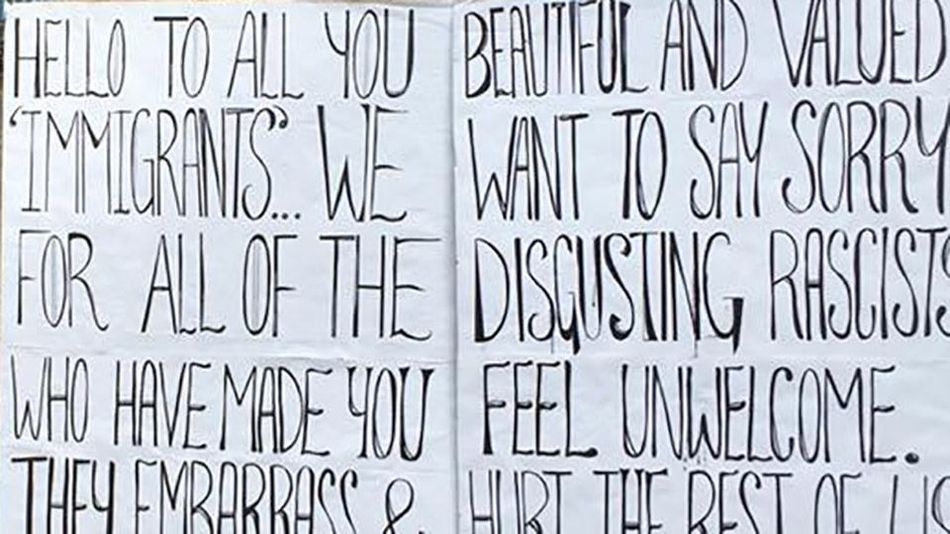 HELLO TO ALL YOU BEAUTIFUL AND VALUED
'IMMIGRANTS'... WE WANT TO SAY SORRY
FOR ALL OF THE DISGUSTING RASCISTS
WHO HAVE MADE YOU FEEL UNWELCOME.
THEY EMBARRASS & HURT THE REST OF US